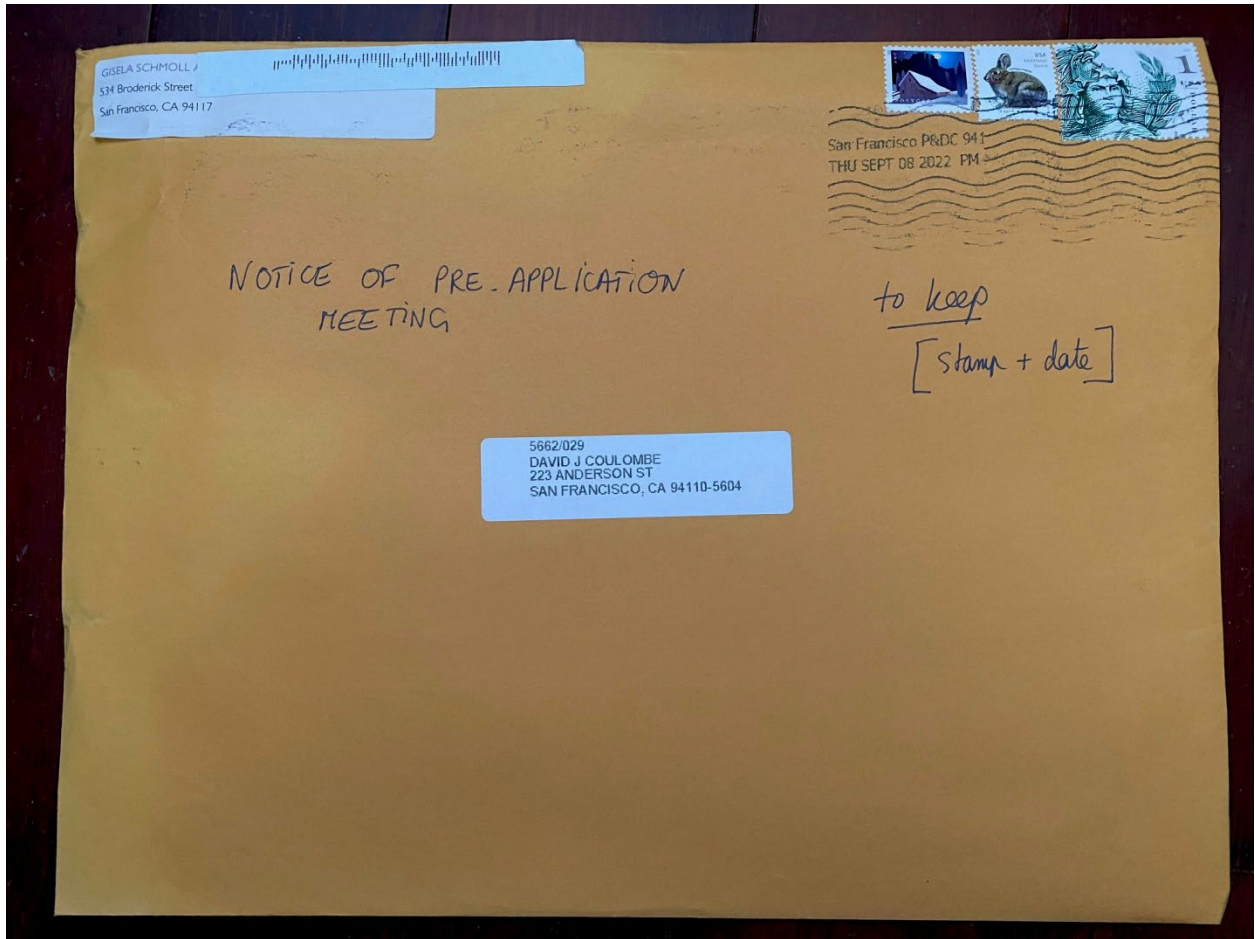 GISELA SCHMOLL
534 Broderick Street
San Francisco, CA 94117
USA
1
San Francisco P&DC 941
THU SEPT 08 2022 PM
NOTICE OF PRE-APPLICATION
MEETING
to keep
[stamp + date]
5662/029
DAVID J COULOMBE
223 ANDERSON ST
SAN FRANCISCO, CA 94110-5604